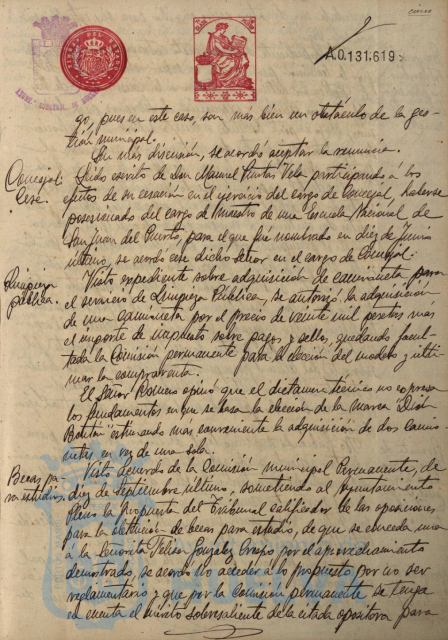 A.0.131.619
go, pues en este caso, son mas bien un obstáculo de la ges-
tión municipal.
Sin mas discusión, se acordó aceptar la renuncia.
Concejal.
Cese.
Leido escrito de Don Manuel Puntas Vela participando á los
efectos de su cesación en el ejercicio del cargo de Concejal, haberse
posesionado del cargo de Maestro de una Escuela Nacional de
San Juan del Puerto, para el que fué nombrado en diez de Junio
último, se acordó cese dicho señor en el cargo de Concejal.
Limpieza
pública.
Visto expediente sobre adquisición de camioneta para
el servicio de Limpieza Pública, se autorizó la adquisición
de una camioneta por el precio de veinte mil pesetas mas
el importe de impuesto sobre pagos y sellos, quedando facul-
tada la Comisión permanente para la elección del modelo y ulti-
mar la compraventa.
El Señor Romero opinó que el dictamen técnico no expresa
los fundamentos en que se basa la elección de la marca "Dion
Boutón" estimando mas conveniente la adquisición de dos camio-
netas en vez de una sola.
Becas pa-
ra estudios.
Visto acuerdo de la Comisión municipal Permanente, de
diez de Septiembre último, sometiendo al Ayuntamiento
Pleno la propuesta del Tribunal calificador de las oposiciones
para la obtención de becas para estudio, de que se conceda una
a la Señorita Felisa González Crespo por el aprovechamiento
demostrado, se acordó no acceder a lo propuesto por no ser
reglamentario y que por la Comisión permanente se tenga
en cuenta el mérito sobresaliente de la citada opositora para